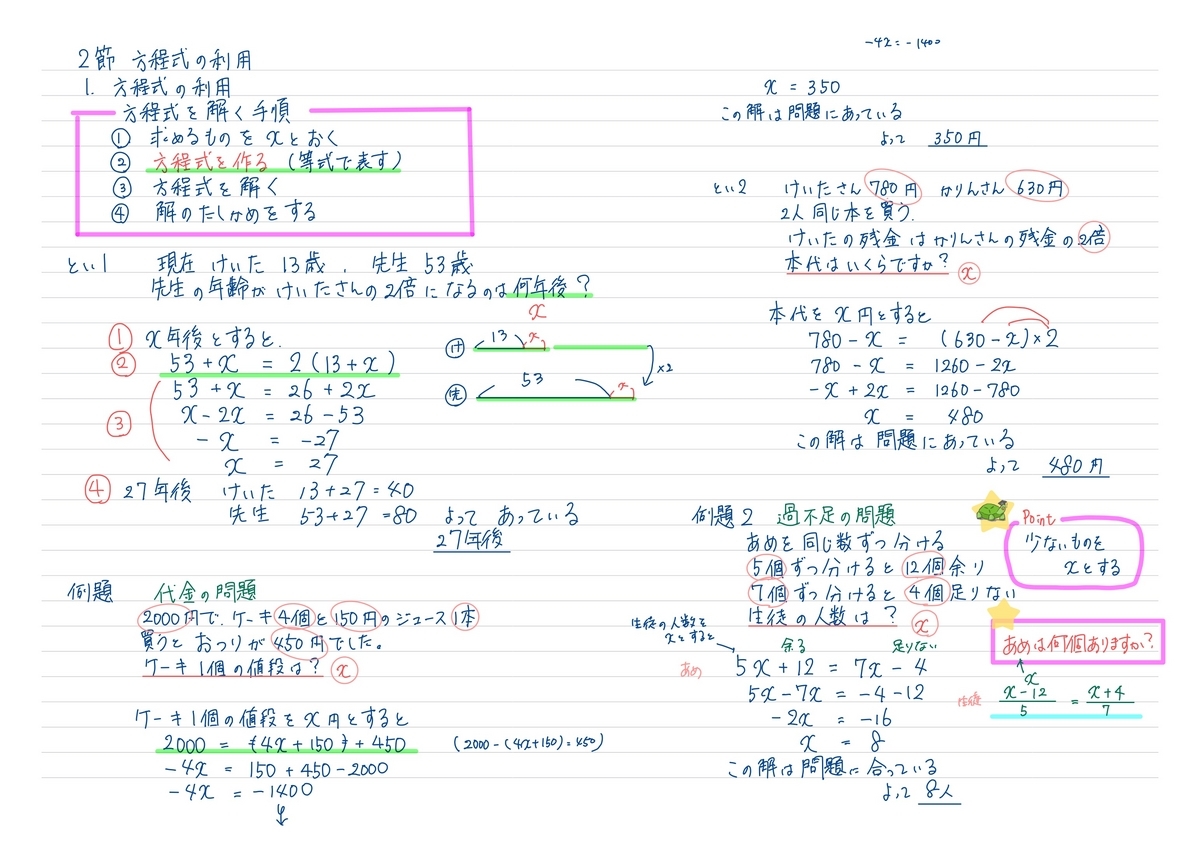 2節 方程式の利用
1. 方程式の利用
方程式を解く手順
① 求めるものをxとおく
② 方程式を作る (等式で表す)
③ 方程式を解く
④ 解のたしかめをする
とい1 現在 けいた 13歳 , 先生 53歳
先生の年齢がけいたさんの2倍になるのは何年後?
x
① x年後とすると.
② 53+x = 2(13+x)
53+x = 26+2x
③ x-2x = 26-53
-x = -27
x = 27
け 13 x
×2
先 53 x
④ 27年後 けいた 13+27=40
先生 53+27=80 よって あっている
27年後
例題 代金の問題
2000円で、ケーキ4個と150円のジュース1本
買うと おつりが450円でした。
ケーキ1個の値段は? x
ケーキ1個の値段をx円とすると
2000 = (4x+150)+450 (2000-(4x+150)=450)
-4x = 150+450-2000
-4x = -1400
-4x=-1400
x = 350
この解は問題にあっている
よって 350円
とい2 けいたさん 780円 かりんさん 630円
2人同じ本を買う.
けいたの残金はかりんさんの残金の2倍
本代はいくらですか? x
本代をx円とすると
780-x = (630-x)×2
780-x = 1260-2x
-x+2x = 1260-780
x = 480
この解は問題にあっている
よって 480円
例題2 過不足の問題
あめを同じ数ずつ分ける
5個ずつ分けると12個余り
7個ずつ分けると4個足りない
生徒の人数は? x
Point
少ないものを
xとする
生徒の人数を
xとすると
余る 足りない
あめ 5x+12 = 7x-4
5x-7x = -4-12
-2x = -16
x = 8
この解は問題に合っている
よって 8人
あめは何個ありますか?
x
生徒 x-12/5 = x+4/7